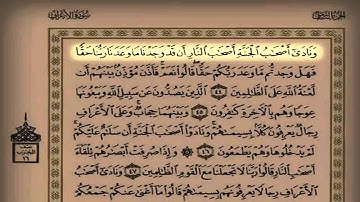 سورة الأعراف
الجزء الثامن
ونادى أصحاب الجنة أصحاب النار أن قد وجدنا ما وعدنا ربنا حقا
فهل وجدتم ما وعد ربكم حقا قالوا نعم فأذن مؤذن بينهم أن
لعنة الله على الظالمين ٤٤ الذين يصدون عن سبيل الله ويبغونها
عوجا وهم بالآخرة كافرون ٤٥ وبينهما حجاب وعلى الأعراف
رجال يعرفون كلا بسيماهم ونادوا أصحاب الجنة أن سلام عليكم
لم يدخلوها وهم يطمعون ٤٦ وإذا صرفت أبصارهم تلقاء
أصحاب النار قالوا ربنا لا تجعلنا مع القوم الظالمين ٤٧ ونادى أصحاب
الأعراف رجالا يعرفونهم بسيماهم قالوا ما أغنى عنكم جمعكم